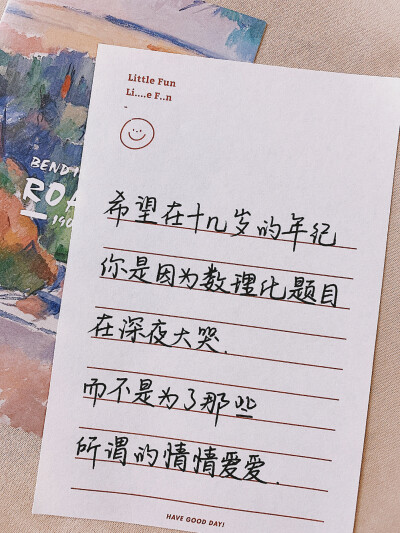 Little Fun
Li....e F..n
BEND
ROA
190
希望在十几岁的年纪
你是因为数理化题目
在深夜大哭.
而不是为了那些
所谓的情情爱爱.
HAVE GOOD DAY!